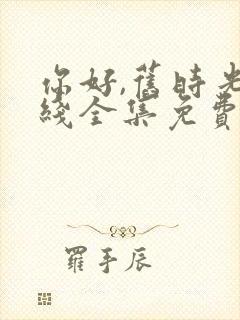 你好,旧時光
綫全集免費
羅手辰